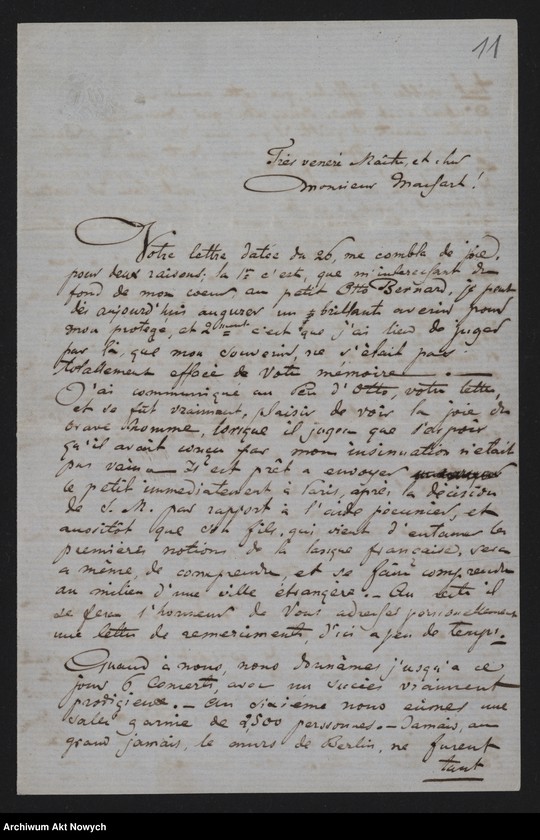 11
Très veneré Maître, et cher
Monsieur Massart!
Votre lettre datée du 26, me comble de joie,
pour deux raisons; la 1re c'est, que m'interessant du
fond de mon coeur, au petit Otto Bernard, je peut
dès aujourd'huis augurer un brillant avenir pour
mon protegé, et 2ment c'est que j'ai lieu de juger
par là, que mon souvenir, ne s'était pas
totallement effacé de Votre memoire. —
J'ai communiqué au Père d'Otto, votre lettre,
et se fût vraiment, plaisir de voir la joie du
brave homme, lorsque il jugea que l'espoir
qu'il avait conçu par mon insinuation n'était
pas vain. — Il est prêt a envoyer
le petit immediatement à Paris, après la décision
de S. M. par rapport à l'aide pécunier, et
aussitôt que son fils, qui vient d'entamer les
premières notions de la langue française, sera
a même, de comprendre, et se faire comprendre
au milieu d'une ville étrangère. — Au reste il
se fera l'honneur de Vous adresser personellement
une lettre de remerciments, d'ici a peu de temps. —
Quand à nous, nous donnâmes j'usqu'a ce
jour 6 Concerts, avec un succès vraiment
prodigieux. — Au sixième nous eûmes une
salle garnie de 2,500 personnes. — Jamais, au
grand jamais, le murs de Berlin, ne furent
tant
Archiwum Akt Nowych